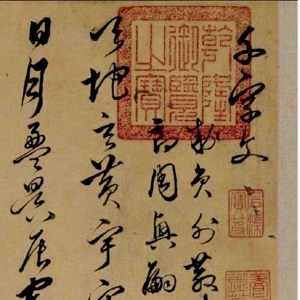 千字文
敕員外散
郎周興嗣
天地玄黃宇宙
日月盈昃辰宿
乾隆御覽之寶
石渠寶笈